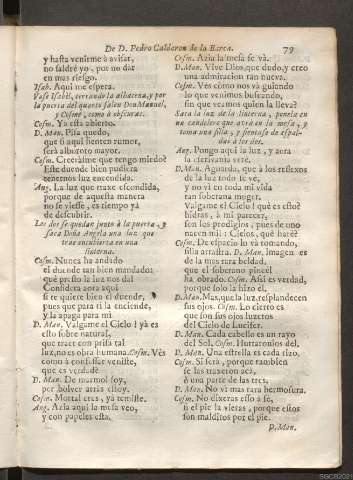 De D. Pedro Calderon de la Barca. 79
y hasta venirme à avisar,
no saldrè yo, por no dar
en mas riesgo.
Isab. Aqui me espera.
Vase Isabèl, cerrando la alhacena, y por
la puerta del quarto salen Don Manuel,
y Cosme, como à obscuras.
Cosm. Ya està abierto.
D. Man. Pisa quedo,
que si aqui sienten rumor,
serà alboroto mayor.
Cosm. Creeràsme que tengo miedo?
Este duende bien pudiera
tenernos luz encendida.
Ang. La luz que traxe escondida,
porque de aquesta manera
no se viesse, es tiempo yà
de descubrir.
Los dos se quedan junto à la puerta, y
saca Doña Angela una luz que
trae encubierta en una
linterna.
Cosm. Nunca ha andado
el duende tan bien mandado:
què presto la luz nos dà!
Considera aora aqui
si te quiere bien el duende,
pues que para tì la enciende,
y la apaga para mi.
D. Man. Valgame el Cielo! yà es
esto sobre natural,
que traer con prisa tal
luz, no es obra humana. Cosm. Vès
como à confessar veniste,
que es verdad?
D. Man. De marmol soy,
por bolver atràs estoy.
Cosm. Mortal eres, yà temiste.
Ang. Azia aqui la mesa veo,
y con papeles està.
Cosm. Azia la mesa se và.
D. Man. Vive Dios, que dudo, y creo
una admiracion tan nueva.
Cosm. Vès còmo nos và guiando
lo que venimos buscando,
sin que veamos quien la lleva?
Saca la luz de la linterna, ponela en
un candelero que avrà en la mesa, y
toma una silla, y sientase de espal-
das à los dos.
Ang. Pongo aqui la luz, y aora
la escrivania verè.
D. Man. Aguarda, que à los reflexos
de la luz todo se vè,
y no vì en toda mi vida
tan soberana muger.
Valgame el Cielo! què es esto?
hidras, à mi parecer,
son los prodigios, pues de uno
nacen mil: Cielos, què harè?
Cosm. De espacio lo và tomando,
silla arrastra. D. Man. Imagen es
de la mas rara beldad,
que el soberano pincèl
ha obrado. Cosm. Assi es verdad,
porque solo la hizo èl.
D. Man. Mas, que la luz, resplandecen
sus ojos. Cosm. Lo cierto es
que son sus ojos luzeros
del Cielo de Lucifer.
D. Man. Cada cabello es un rayo
del Sol. Cosm. Hurtaronlos dèl.
D. Man. Una estrella es cada rizo.
Cosm. Si serà, porque tambien
se las traxeron acà,
ò una parte de las tres.
D. Man. No vì mas rara hermosura.
Cosm. No dixeras esso à fè,
si el pie la vieras, porque estos
son malditos por el pie.
D. Man.